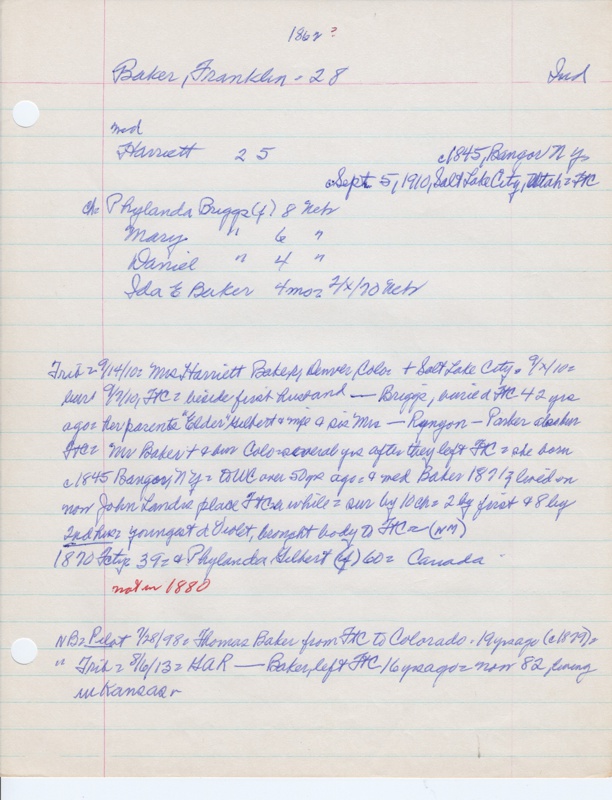 1862?
Baker, Franklin - 28 Ind
md
Harriett 25 c1845, Bangor N Y
Sept 5, 1910, Salt Lake City, Utah = FtC
ch = Phylanda Briggs (f) 8 Nebr
Mary " 6 "
Daniel " 4 "
Ida E Baker 4mo = 2/x/70 Nebr
Trib = 9/14/10 = Mrs Harriett Baker, Denver, Colo + Salt Lake City = 9/x/10 =
buri 9/9/10, FtC = beside first husband — Briggs, buried FtC 42 yrs
ago = her parents "Elder" Gilbert & wife & sis Mrs — Runyon — Parker also bur
FtC = Mr Baker + & bur Colo several yrs after they left FtC = she born
c1845 Bangor, N Y = to WC over 50 yrs ago = & med Baker 1871? lived on
now John Landis place FtC a while = sur by 10 ch = 2 by first & 8 by
2nd hus = youngest d Violet, brought body to FtC = (NM)
1870 Fctyp 39 = & Phylanda Gilbert (f) 60 = Canada
not in 1880
NB = Pilot 7/28/98 = Thomas Baker from FtC to Colorado - 19 yrs ago (c1879) =
" Trib = 8/6/13 = GAR — Baker, left FtC 16 yrs ago = now 82, living
in Kansas -